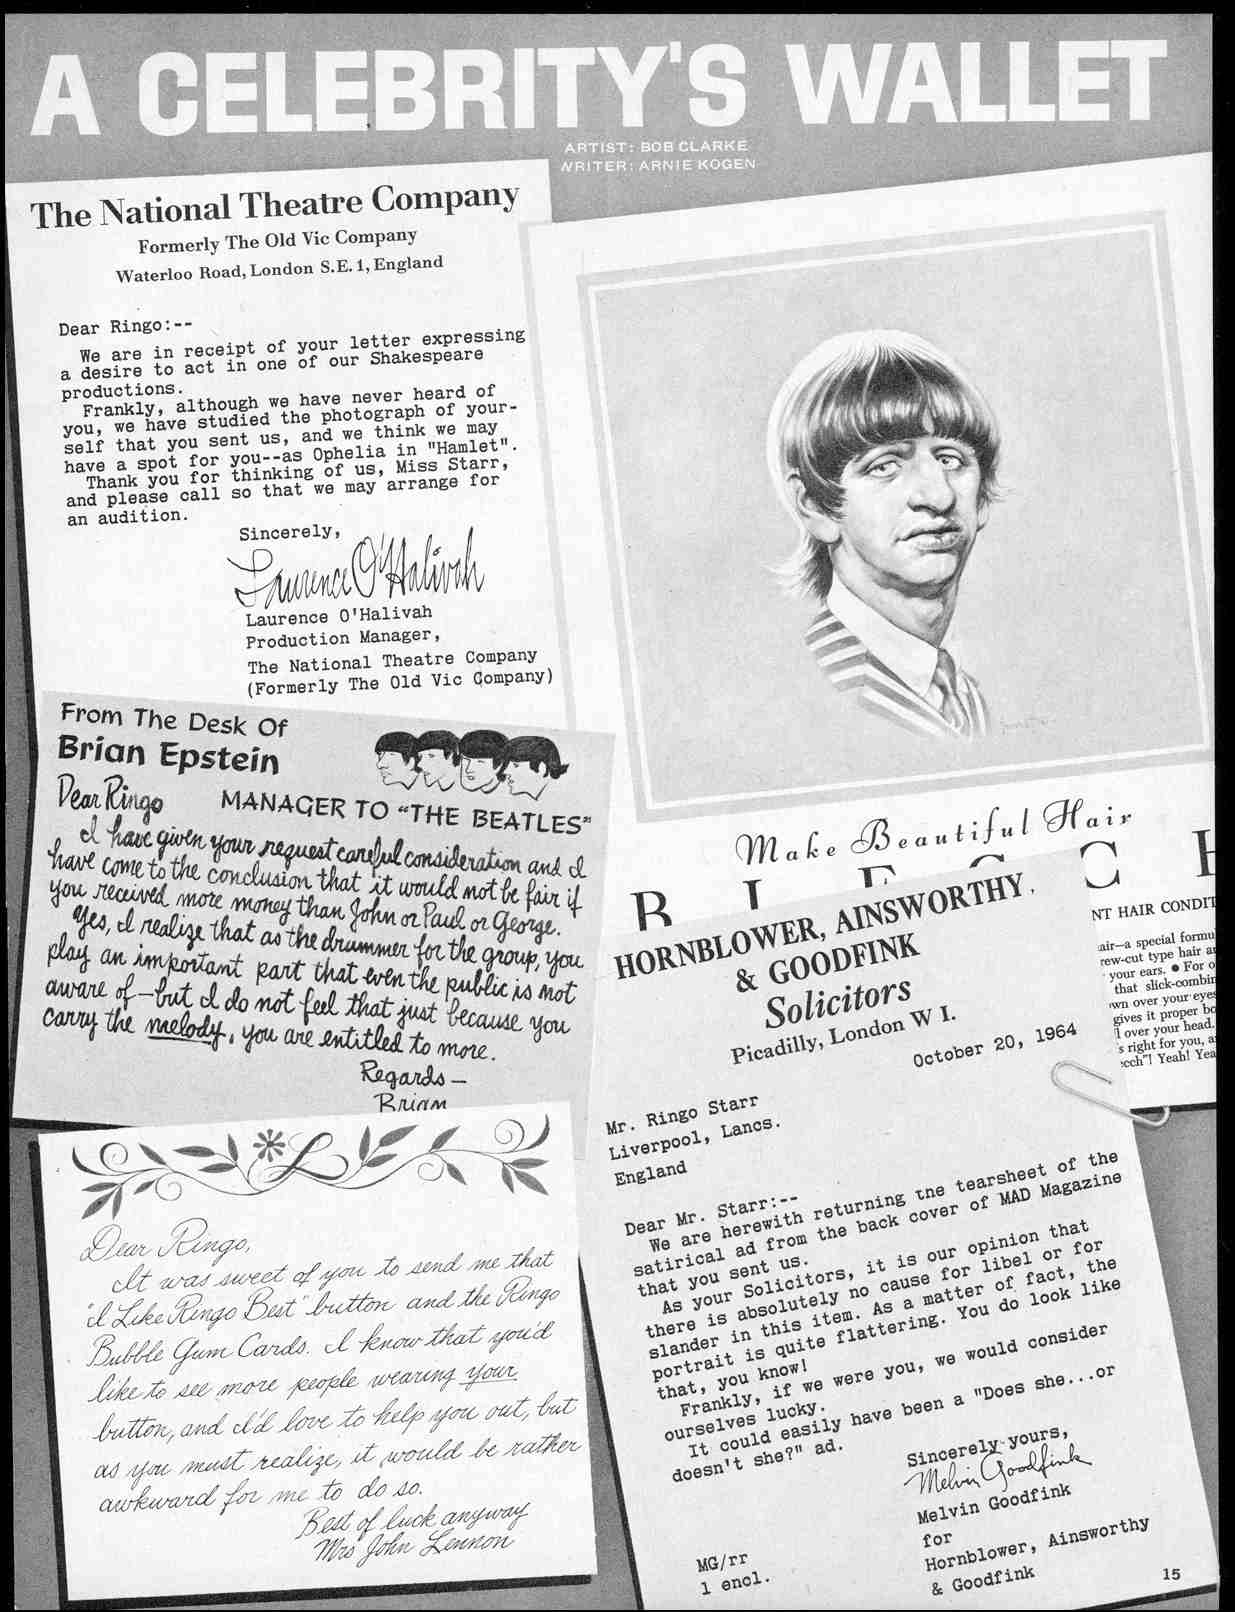 A CELEBRITY'S WALLET
ARTIST: BOB CLARKE
WRITER: ARNIE KOGEN
The National Theatre Company
Formerly The Old Vic Company
Waterloo Road, London S.E. 1, England
Dear Ringo:--
We are in receipt of your letter expressing
a desire to act in one of our Shakespeare
productions.
Frankly, although we have never heard of
you, we have studied the photograph of your-
self that you sent us, and we think we may
have a spot for you--as Ophelia in "Hamlet".
Thank you for thinking of us, Miss Starr,
and please call so that we may arrange for
an audition.
Sincerely,
Laurence O'Halivah
Laurence O'Halivah
Production Manager,
The National Theatre Company
(Formerly The Old Vic Company)
From The Desk Of
Brian Epstein
MANAGER TO "THE BEATLES"
Dear Ringo
I have given your request careful consideration and I
have come to the conclusion that it would not be fair if
you received more money than John or Paul or George.
Yes, I realize that as the drummer for the group, you
play an important part that even the public is not
aware of—but I do not feel that just because you
carry the melody, you are entitled to more.
Regards—
Brian
Dear Ringo,
It was sweet of you to send me that
"I Like Ringo Best" button and the Ringo
Bubble Gum Cards. I know that you'd
like to see more people wearing your
button, and I'd love to help you out, but
as you must realize, it would be rather
awkward for me to do so.
Best of luck anyway
Mrs John Lennon
Make Beautiful Hair
B L E C C H
NT HAIR CONDIT
air—a special formu
rew-cut type hair a
your ears. ● For o
that slick-combin
wn over your eyes
gives it proper bo
l over your head.
s right for you, a
ecch"! Yeah! Yea
HORNBLOWER, AINSWORTHY,
& GOODFINK
Solicitors
Picadilly, London W I.
October 20, 1964
Mr. Ringo Starr
Liverpool, Lancs.
England
Dear Mr. Starr:--
We are herewith returning the tearsheet of the
satirical ad from the back cover of MAD Magazine
that you sent us.
As your Solicitors, it is our opinion that
there is absolutely no cause for libel or for
slander in this item. As a matter of fact, the
portrait is quite flattering. You do look like
that, you know!
Frankly, if we were you, we would consider
ourselves lucky.
It could easily have been a "Does she...or
doesn't she?" ad.
Sincerely yours,
Melvin Goodfink
Melvin Goodfink
for
Hornblower, Ainsworthy
& Goodfink
MG/rr
1 encl.
15